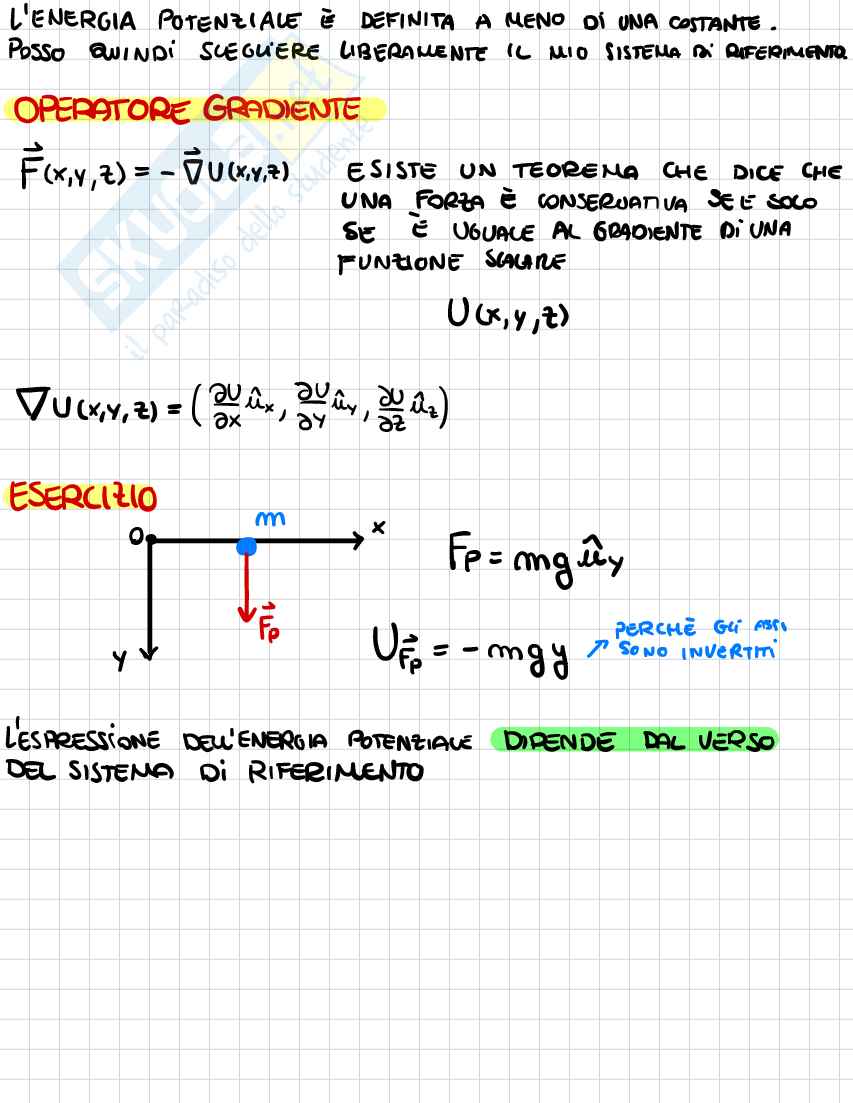 L'ENERGIA POTENZIALE È DEFINITA A MENO DI UNA COSTANTE.
POSSO QUINDI SCEGLIERE LIBERAMENTE IL MIO SISTEMA DI RIFERIMENTO.
OPERATORE GRADIENTE
F⃗(x,y,z) = - ∇⃗U(x,y,z)
ESISTE UN TEOREMA CHE DICE CHE
UNA FORZA È CONSERVATIVA SE E SOLO
SE È UGUALE AL GRADIENTE DI UNA
FUNZIONE SCALARE
U(x,y,z)
∇U(x,y,z) = (∂U/∂x û_x, ∂U/∂y û_y, ∂U/∂z û_z)
ESERCIZIO
m
O
x
F_P = mg û_y
F⃗_P
y
U_F⃗_P = - mgy
PERCHÈ GLI ASSI
SONO INVERTITI
L'ESPRESSIONE DELL'ENERGIA POTENZIALE DIPENDE DAL VERSO
DEL SISTEMA DI RIFERIMENTO
SKUOLA.net
il paradiso dello studente